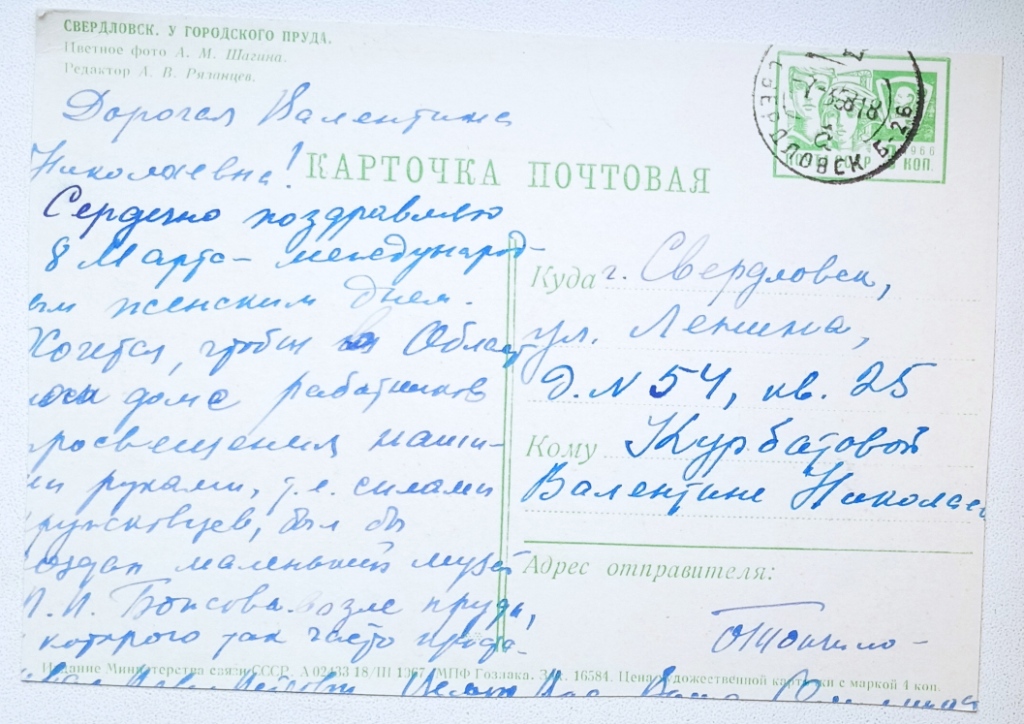 СВЕРДЛОВСК. У ГОРОДСКОГО ПРУДА.
Цветное фото А. М. Шагина.
Редактор А. В. Рязанцев.
Дорогая Валентина
Николаевна!
КАРТОЧКА ПОЧТОВАЯ
Сердечно поздравляю
8 Марта – международ-
ым женским днем.
Хочется, чтобы в Област
ном доме работников
просвещения наши-
ми руками, т.е. силами
кружковцев, был бы
создан маленький музей
П. П. Бажова возле пруда,
у которого так часто
Куда г. Свердловск,
ул. Ленина,
д. N 54, кв. 25
Кому Курбатовой
Валентине Николае
Адрес отправителя:
СВЕРДЛОВСК
1966
КОП.
Издание Министерства связи СССР. А 02433 18/III 1967. МПФ Гознака. Зак. 16584. Цена художественной карточки с маркой 4 коп.